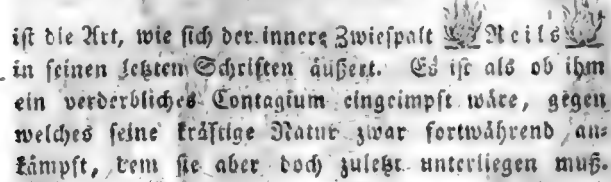 ist die Art, wie sich der innere Zwiespalt Reils
in seinen letzten Schriften äußert. Es ist als ob ihm
ein verderbliches Contagium eingeimpft wäre, gegen
welches seine kräftige Natur zwar fortwährend an-
kämpft, dem sie aber doch zuletzt unterliegen muß.